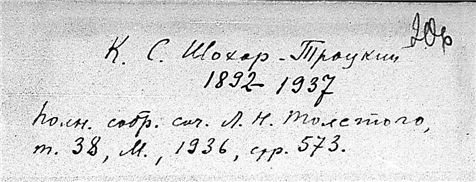 К. С. Шохор-Троцкий
1892-1937
Полн. собр. соч. Л. Н. Толстого,
т. 38, М., 1936, стр. 573.